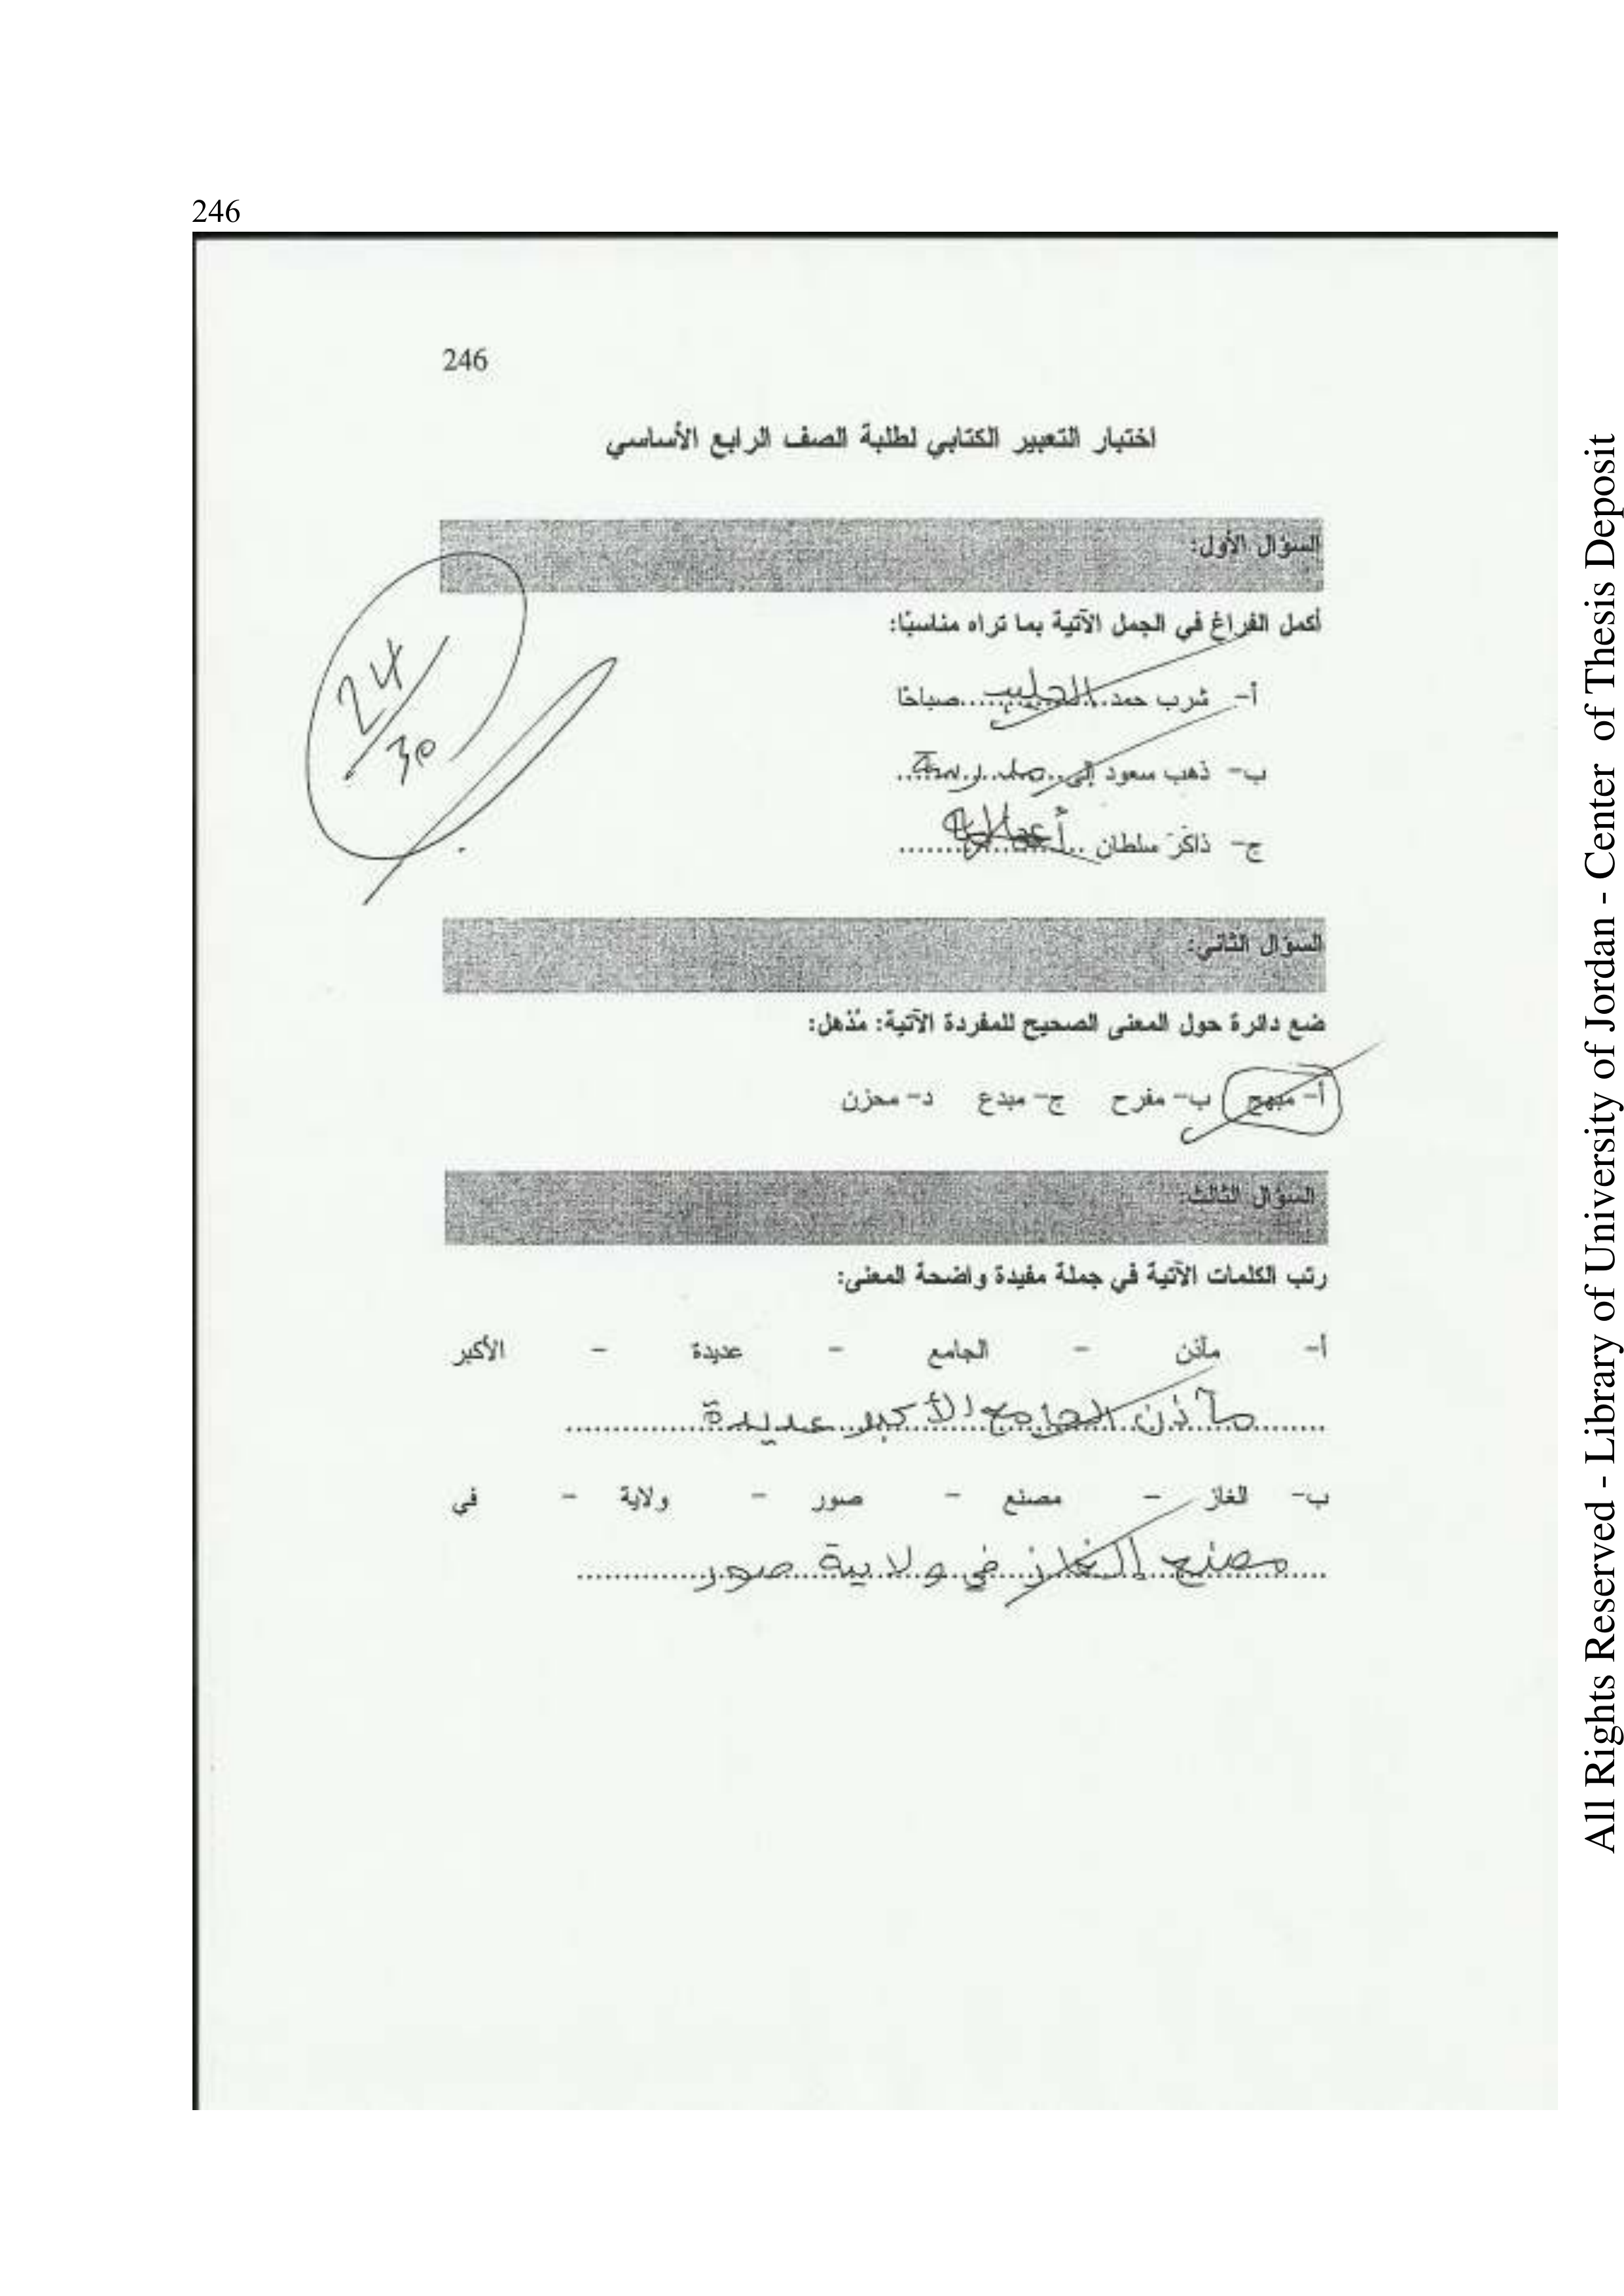 246
246
اختبار التعبير الكتابي لطلبة الصف الرابع الأساسي
السؤال الأول:
أكمل الفراغ في الجمل الآتية بما تراه مناسبًا:
أ- شرب حمد..الحليب.....صباحًا
ب- ذهب سعود إلى..مدرسة..
ج- ذاكَرَ سلطان ..
24
30
السؤال الثاني:
ضع دائرة حول المعنى الصحيح للمفردة الآتية: مُذهل:
أ- مبهج ب- مفرح ج- مبدع د- محزن
السؤال الثالث:
رتب الكلمات الآتية في جملة مفيدة واضحة المعنى:
أ- مآذن - الجامع - عديدة - الأكبر
مآذن الجامع الأكبر عديدة
ب- الغاز - مصنع - صور - ولاية - في
مصنع الغاز في ولاية صور
All Rights Reserved - Library of University of Jordan - Center of Thesis Deposit